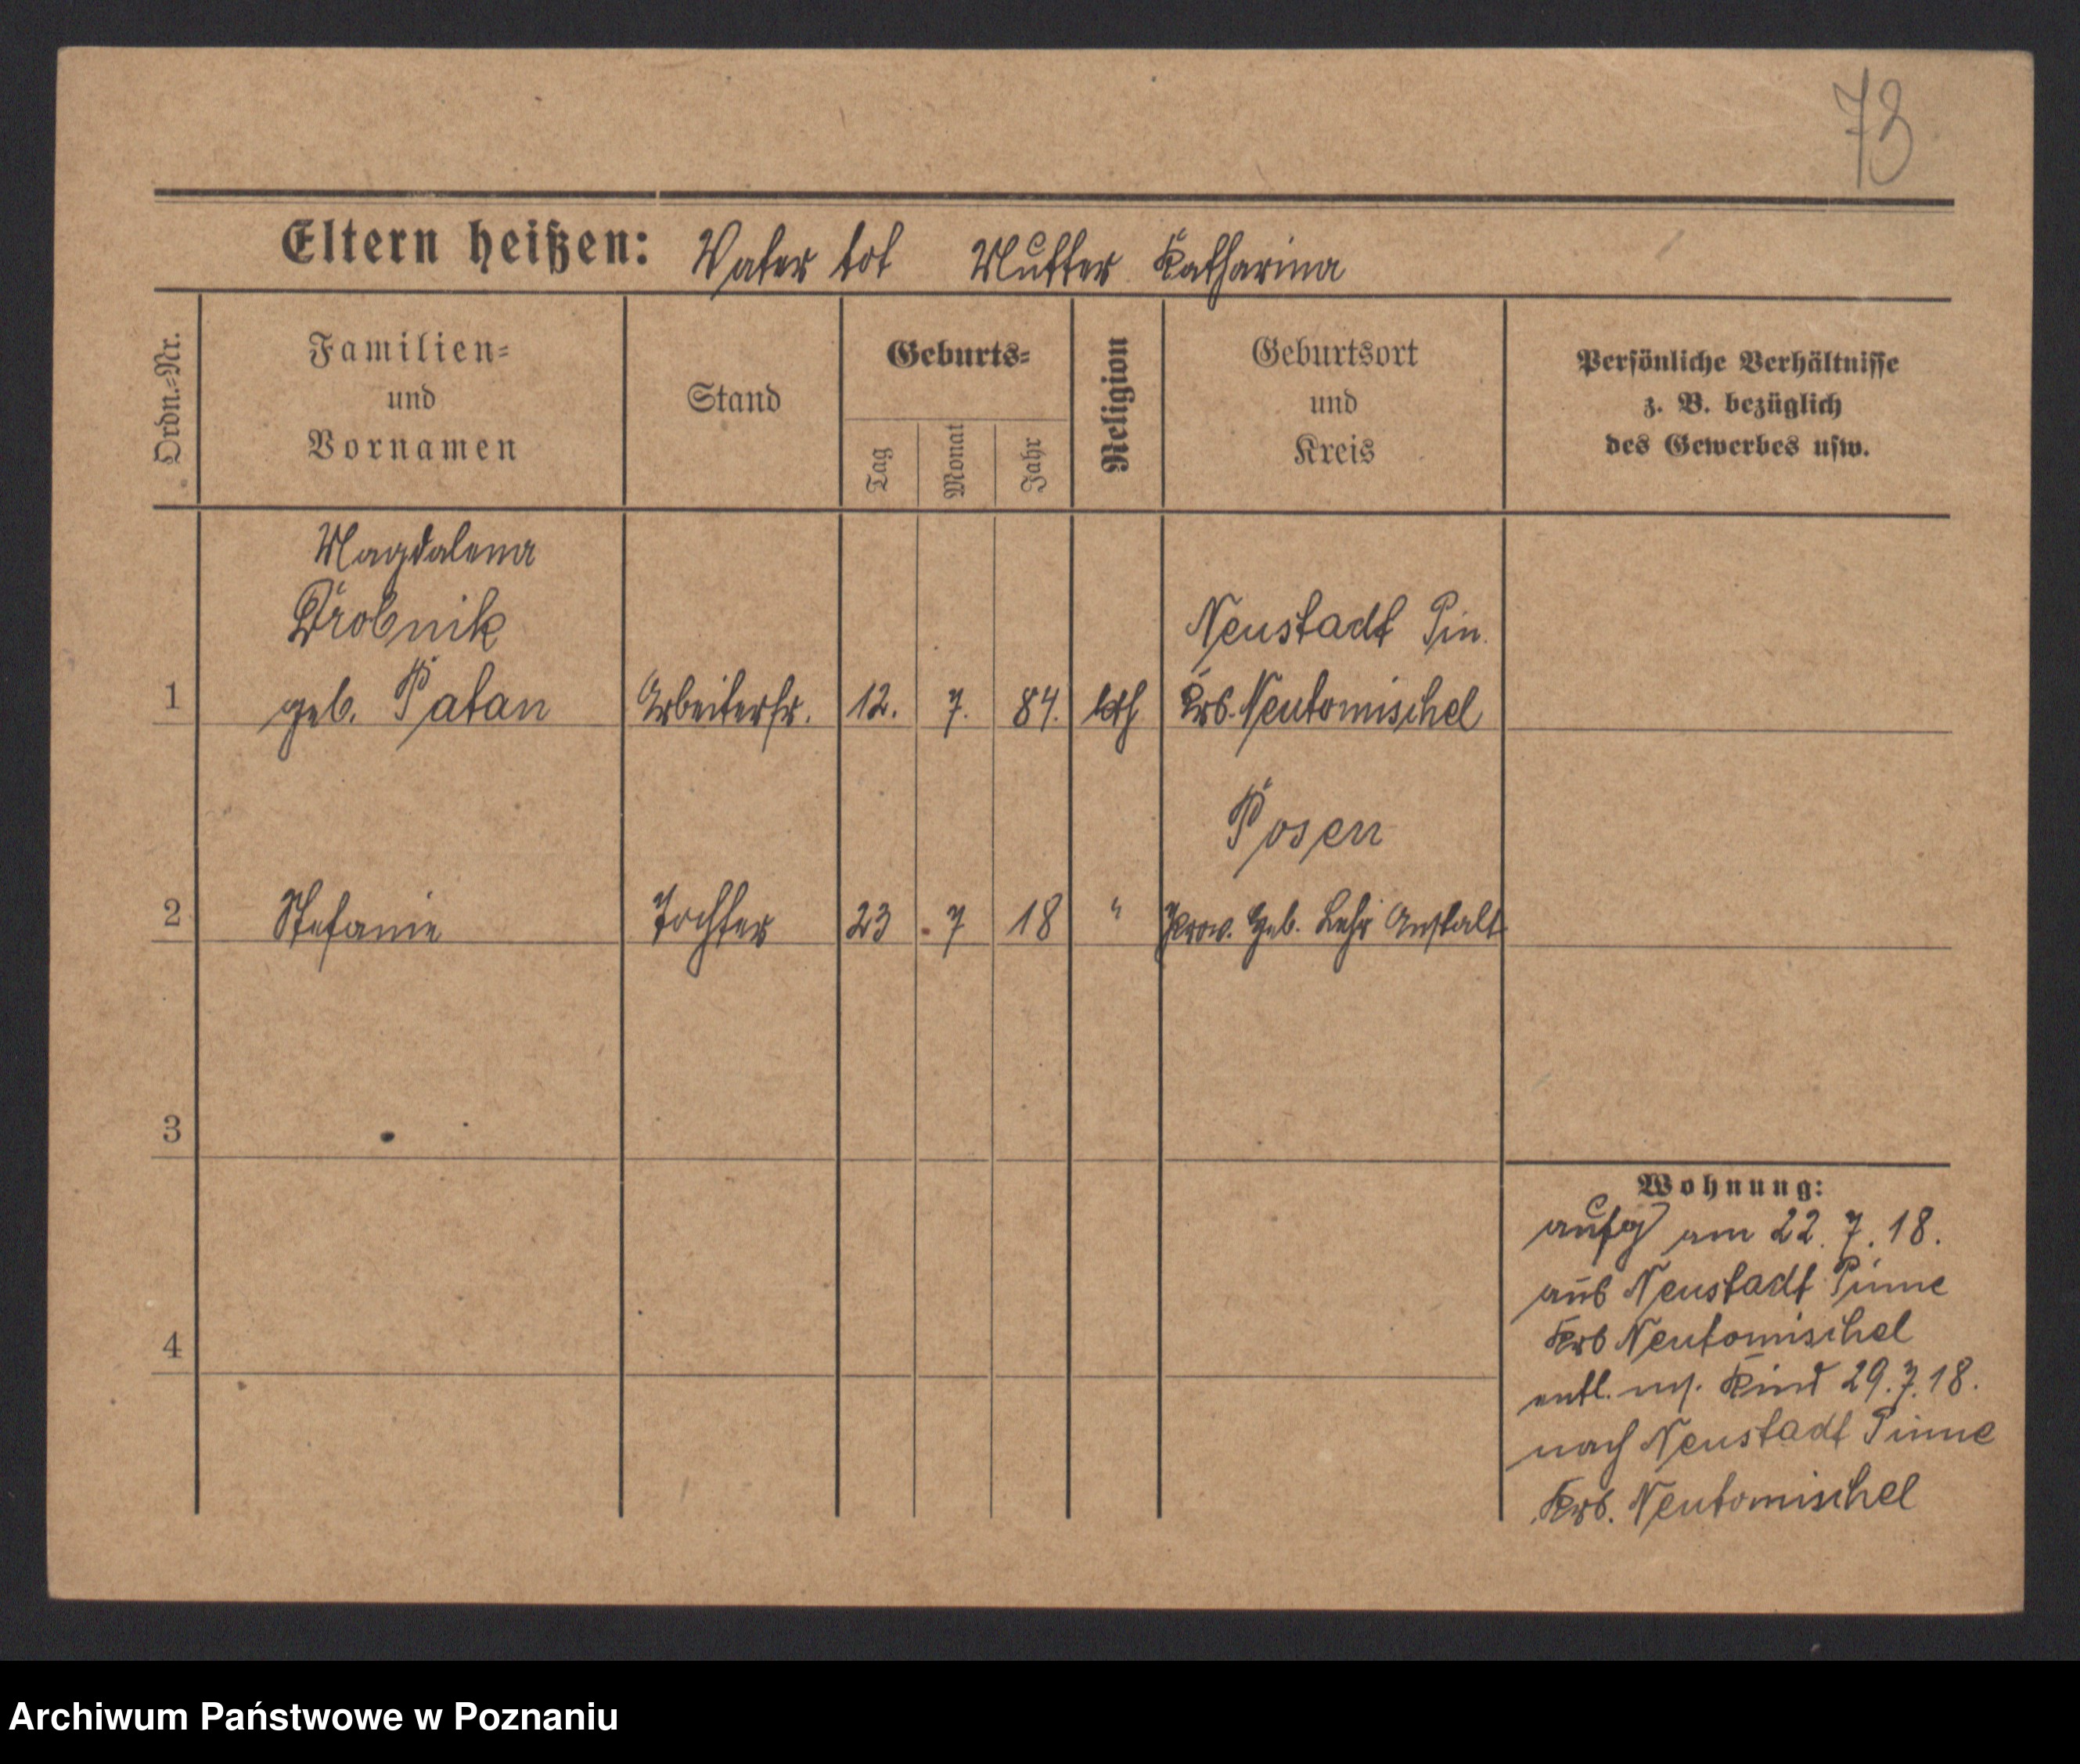 73
Eltern heißen: Vater tot Mutter Katharina
Ordn.-Nr.
Familien-
und
Vornamen
Stand
Geburts-
Tag
Monat
Jahr
Religion
Geburtsort
und
Kreis
Persönliche Verhältnisse
z. B. bezüglich
des Gewerbes usw.
Magdalena
Drobnik Neustadt Pin.
1 geb. Patan Arbeiterfr. 12. 7. 84. kth Krs. Neutomischel
Posen
2 Stefanie Tochter 23 7 18 " Prov. Heb. Lehr Anstalt
3
4
Wohnung:
aufg am 22.7.18.
aus Neustadt Pinne
Krs Neutomischel
entl. m. Kind 29.7.18.
nach Neustadt Pinne
Krs. Neutomischel
Archiwum Państwowe w Poznaniu